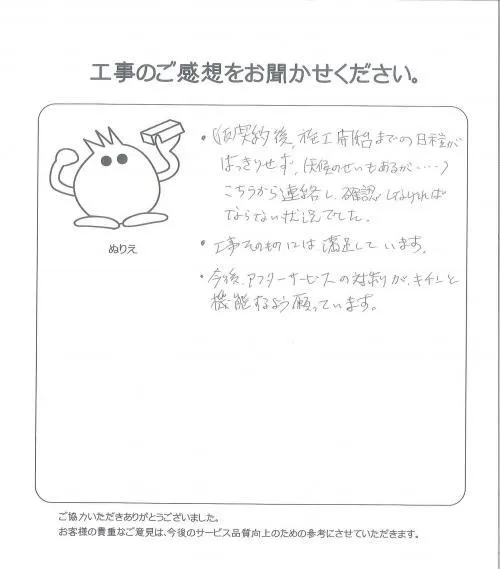 工事のご感想をお聞かせください。
・仮契約後、施工開始までの日程が
はっきりせず、(天候のせいもあるが……)
こちらから連絡し、確認しなければ
ならない状況でした。
・工事そのものには満足しています。
・今後、アフターサービスの体制が、キチンと
機能するよう願っています。
ぬりえ
ご協力いただきありがとうございました。
お客様の貴重なご意見は、今後のサービス品質向上のための参考にさせていただきます。